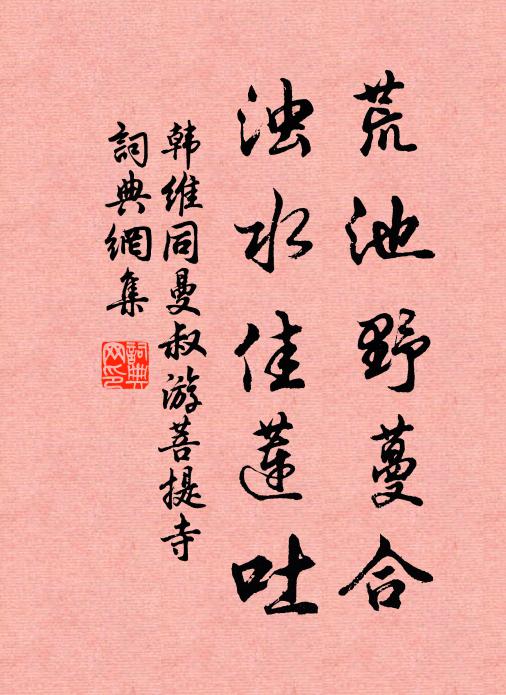 荒池野蔓合
浊水佳莲吐
韩维同曼叔游菩提寺
詞典網集
詞典网印